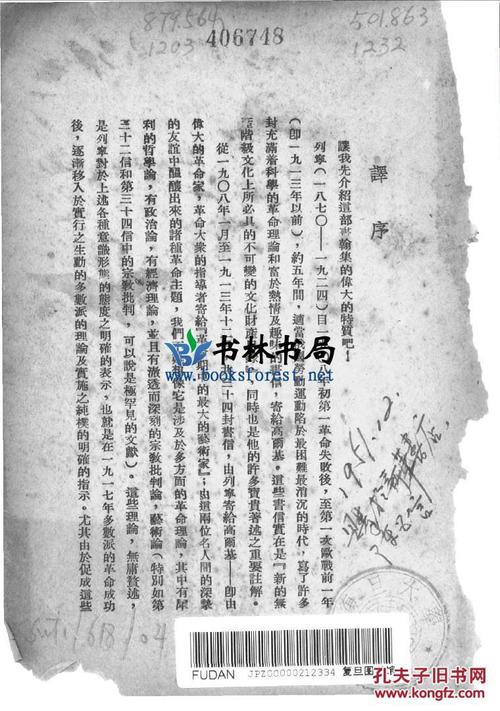 879.564
1203
406748
501.863
1232
譯序
讓我先介紹這部書翰集的偉大的特質吧！
列寧（一八七〇——一九二四）自一
八年初第一革命失敗後，至第一次歐戰前一年
（卽一九一三年以前），約五年間，適當
勞動運動陷於最困難最消沉的時代，寫了許多
封充滿着科學的革命理論和富於熱情及趣味
書信，寄給高爾基。這些書信實在是『新的無
階級文化上所必具的不可變的文化財產
同時也是他的許多寶貴著述之重要註解。
從一九〇八年一月至一九一三年十一
三十四封書信，由列寧寄給高爾基——卽由
偉大的革命家，革命大衆的指導者寄給『革
期中的最大的藝術家』；由這兩位名人間的深摯
的友誼中醞釀出來的諸種革命主題，我們
想像它是涉及於多方面的革命理論，其中有犀
利的哲學論，有政治論，有經濟理論，並且有激透而深刻的宗教批判論，藝術論（特別如第
三十二信和第三十四信中的宗教批判，可以說是極罕見的文獻）。這些理論，無庸贅述，
是列寧對於上述各種意識形態的態度之明確的表示，也就是在一九一七年多數派的革命成功
後，逐漸移入於實行之生動的多數派的理論及實施之純樸的明確的指示。尤其由於促成這些
书林书局
www.booksforest.net
1951.12.
FUDAN JPZ00000212334 复旦图
孔夫子旧书网
kongfz.com